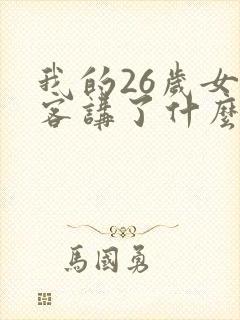 我的26歲女
客講了什麼
馬國勇